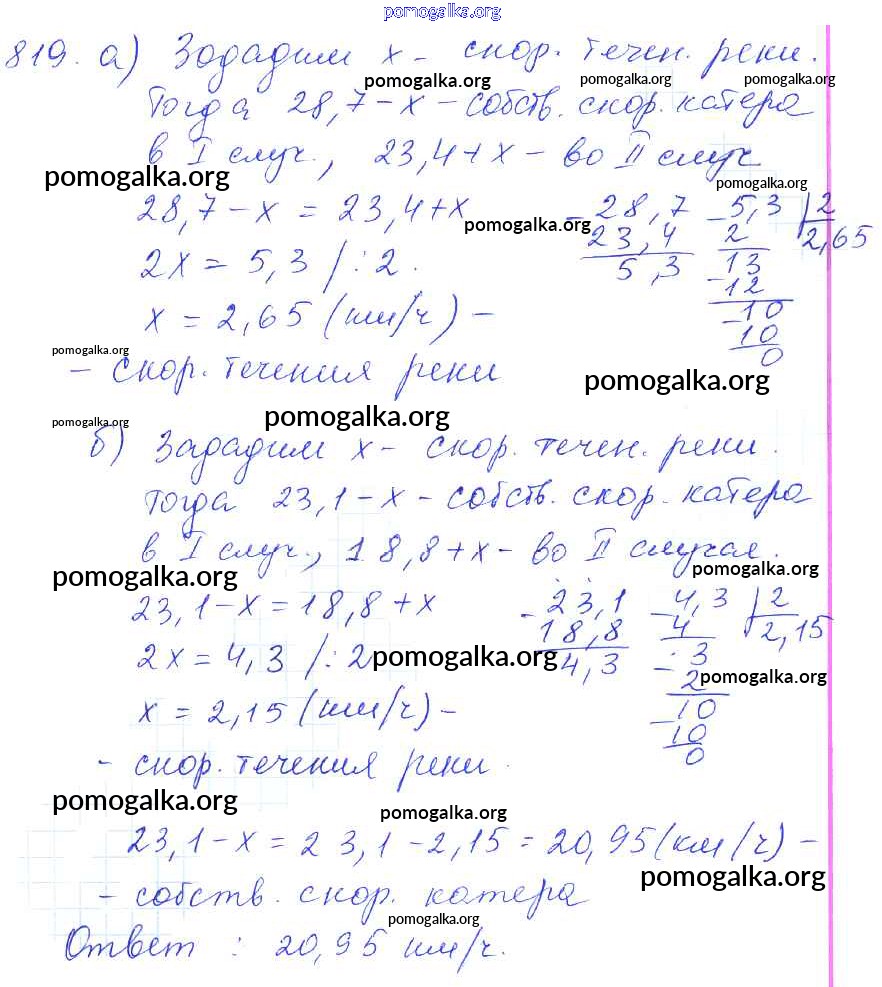 pomogalka.org
819. а) Зададим x - скор. течен. реки.
pomogalka.org pomogalka.org pomogalka.org
Тогда 28,7 - x - собств. скор. катера
в I случ., 23,4 + x - во II случ
pomogalka.org pomogalka.org
28,7 - x = 23,4 + x
pomogalka.org
- 28,7
23,4
5,3
- 5,3 | 2
2 2,65
13
- 12
- 10
10
0
2x = 5,3 / : 2.
x = 2,65 (км/ч) -
pomogalka.org
- скор. течения реки
pomogalka.org
pomogalka.org pomogalka.org
б) Зададим x - скор. течен. реки.
Тогда 23,1 - x - собств. скор. катера
в I случ., 18,8 + x - во II случая.
pomogalka.org pomogalka.org
23,1 - x = 18,8 + x
- 23,1
18,8
4,3
- 4,3 | 2
4 2,15
3
- 2
- 10
10
0
2x = 4,3 / : 2
pomogalka.org pomogalka.org
x = 2,15 (км/ч) -
- скор. течения реки.
pomogalka.org pomogalka.org
23,1 - x = 23,1 - 2,15 = 20,95 (км/ч) -
pomogalka.org
- собств. скор. катера
pomogalka.org
Ответ : 20,95 км/ч.